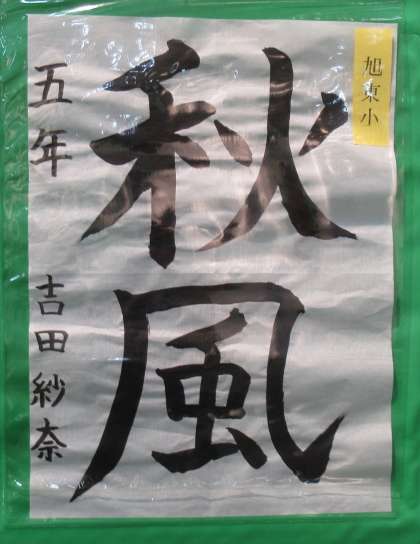 旭東小
秋風
五年 吉田紗奈